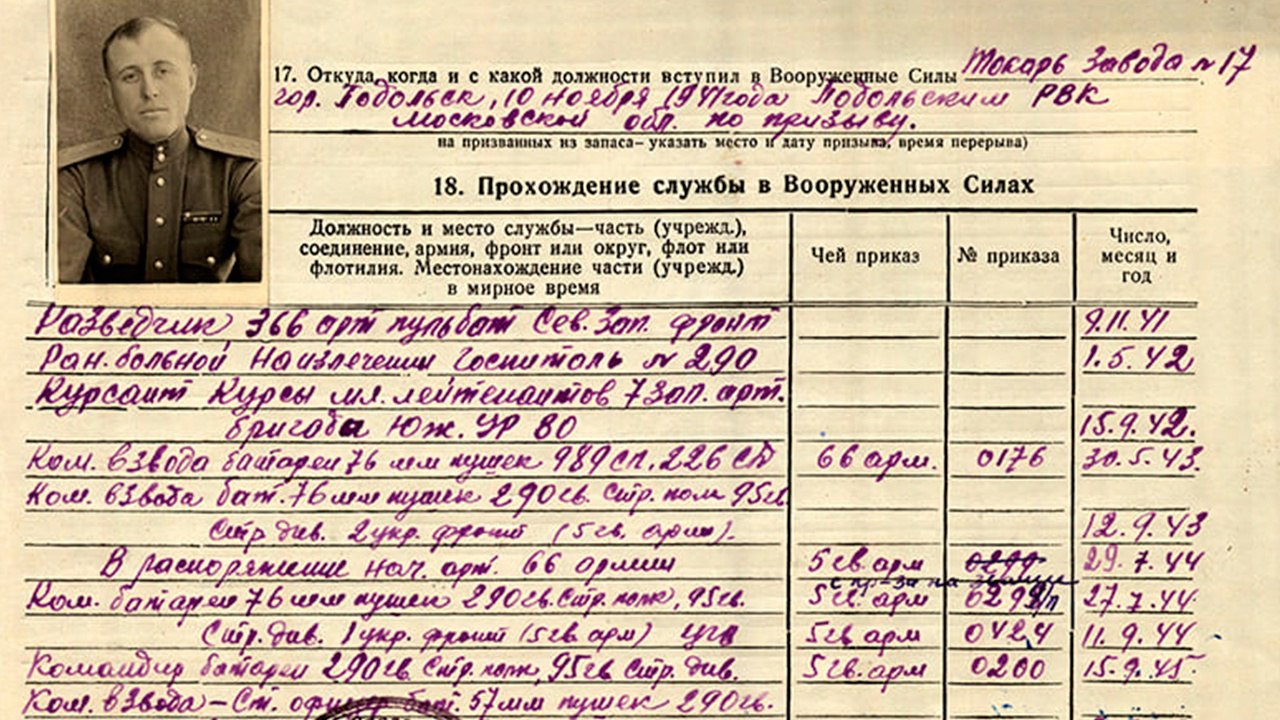 17. Откуда, когда и с какой должности вступил в Вооруженные Силы Токарь завода № 17
гор. Подольск, 10 ноября 1941 года Подольским РВК
Московской обл. по призыву.
на призванных из запаса— указать место и дату призыва, время перерыва)
18. Прохождение службы в Вооруженных Силах
Должность и место службы—часть (учрежд.),
соединение, армия, фронт или округ, флот или
флотилия. Местонахождение части (учрежд.)
в мирное время
Чей приказ
№ приказа
Число,
месяц и
год
Разведчик 366 арт пульбат Сев. Зап. фронт 9.11.41
Ран. больной на излечении Госпиталь № 290 1.5.42
Курсант Курсы мл. лейтенантов 7 зап. арт.
бригада Юж. УР 80 15.9.42.
Ком. взвода батареи 76 мм пушек 989 сп. 226 сд 66 арм. 0176 30.5.43.
Ком. взвода бат. 76 мм пушек 290 гв. Стр. полк 95 гв.
Стр. див. 2 укр. фронт (5 гв. армии). 12.9.43
В распоряжение нач. арт. 66 армии 5 гв арм 29.7.44
Ком. батареи 76 мм пушек 290 гв. Стр. полк, 95 гв. 5 гв. арм 27.7.44
Стр. див. 1 укр. фронт (5 гв арм) 5 гв арм 0424 11.9.44
Командир батареи 290 гв Стр. полк, 95 гв Стр. див. 5 гв. арм 0200 15.9.45
Ком. взвода – Ст. офицер бат. 57 мм пушек 290 гв.